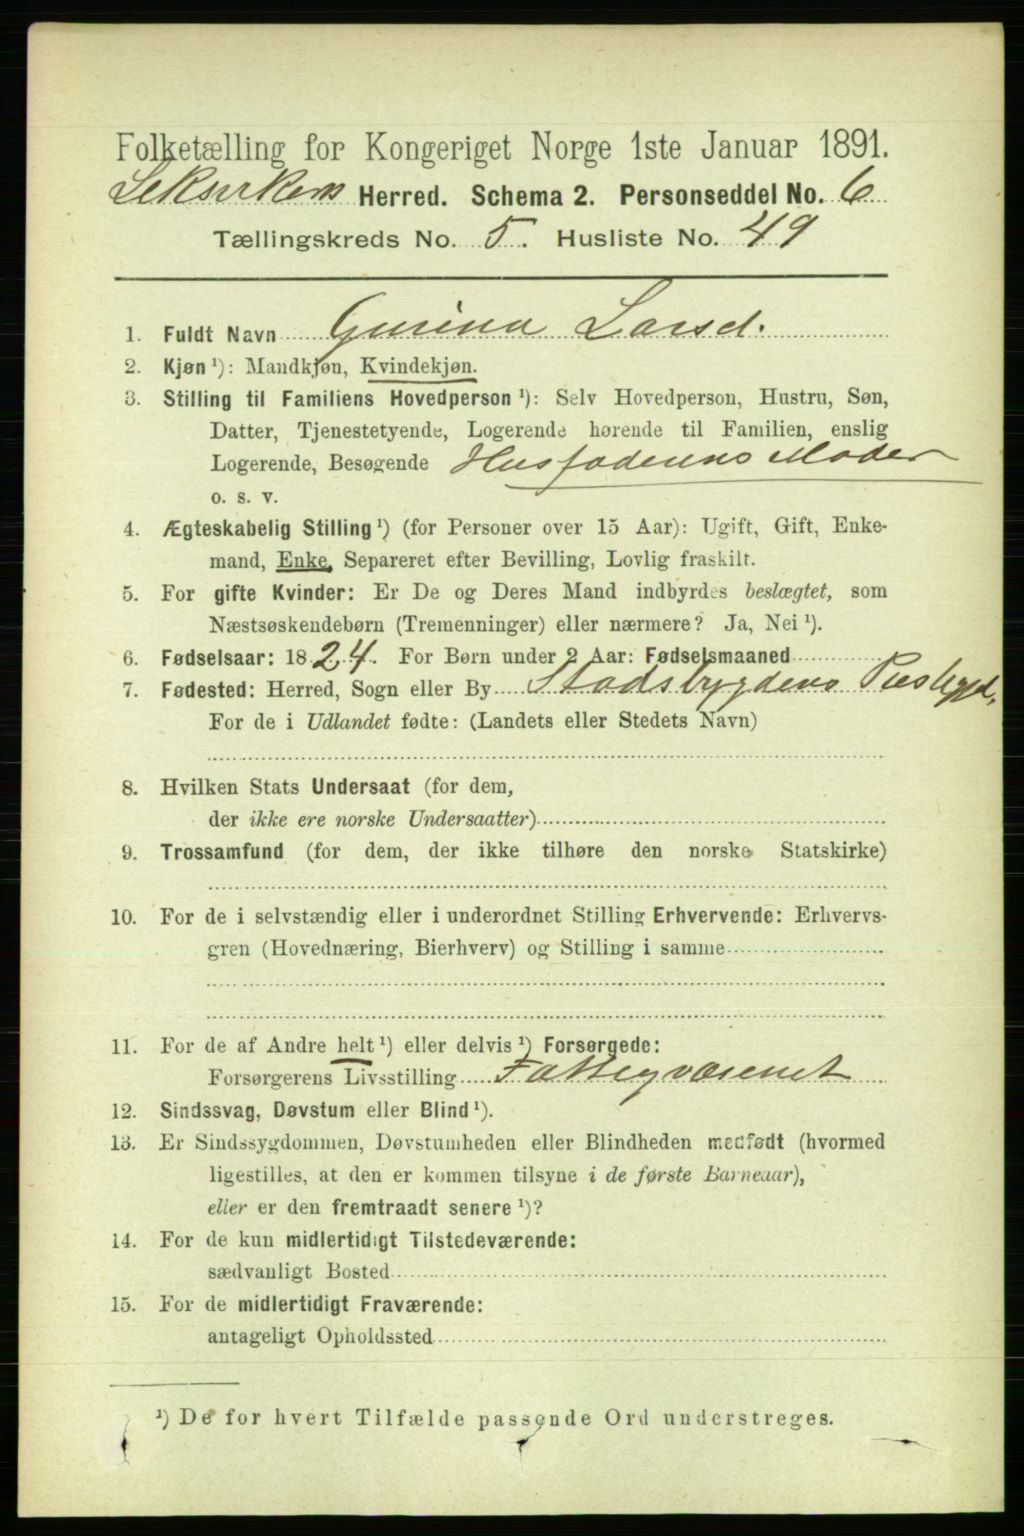 Folketælling for Kongeriget Norge 1ste Januar 1891.
Leksvikens Herred. Schema 2. Personseddel No. 6
Tællingskreds No. 5. Husliste No. 49
1. Fuldt Navn Gurina Larsd.
2. Kjøn ¹): Mandkjøn, Kvindekjøn.
3. Stilling til Familiens Hovedperson ¹): Selv Hovedperson, Hustru, Søn,
Datter, Tjenestetyende, Logerende hørende til Familien, enslig
Logerende, Besøgende Husfaderens Moder
o. s. v.
4. Ægteskabelig Stilling ¹) (for Personer over 15 Aar): Ugift, Gift, Enke-
mand, Enke, Separeret efter Bevilling, Lovlig fraskilt.
5. For gifte Kvinder: Er De og Deres Mand indbyrdes beslægtet, som
Næstsøskendebørn (Tremenninger) eller nærmere? Ja, Nei ¹).
6. Fødselsaar: 1824. For Børn under 2 Aar: Fødselsmaaned
7. Fødested: Herred, Sogn eller By Stadsbygdens Præstegjd.
For de i Udlandet fødte: (Landets eller Stedets Navn)
8. Hvilken Stats Undersaat (for dem,
der ikke ere norske Undersaatter)
9. Trossamfund (for dem, der ikke tilhøre den norske Statskirke)
10. For de i selvstændig eller i underordnet Stilling Erhvervende: Erhvervs-
gren (Hovednæring, Bierhverv) og Stilling i samme
11. For de af Andre helt ¹) eller delvis ¹) Forsørgede:
Forsørgerens Livsstilling Fattigvæsenet
12. Sindssvag, Døvstum eller Blind ¹).
13. Er Sindssygdommen, Døvstumheden eller Blindheden medfødt (hvormed
ligestilles, at den er kommen tilsyne i de første Barneaar),
eller er den fremtraadt senere ¹)?
14. For de kun midlertidigt Tilstedeværende:
sædvanligt Bosted
15. For de midlertidigt Fraværende:
antageligt Opholdssted
¹) De for hvert Tilfælde passende Ord understreges.